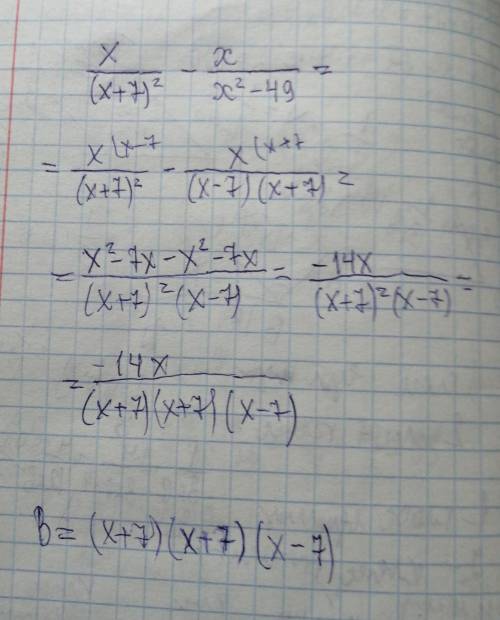 x/(x+7)² - x/(x²-49) =
= x(x-7/(x+7)² - x(x+7/(x-7)(x+7) =
= (x²-7x-x²-7x)/((x+7)²(x-7)) = -14x/((x+7)²(x-7)) =
= -14x/((x+7)(x+7)(x-7))
B = (x+7)(x+7)(x-7)